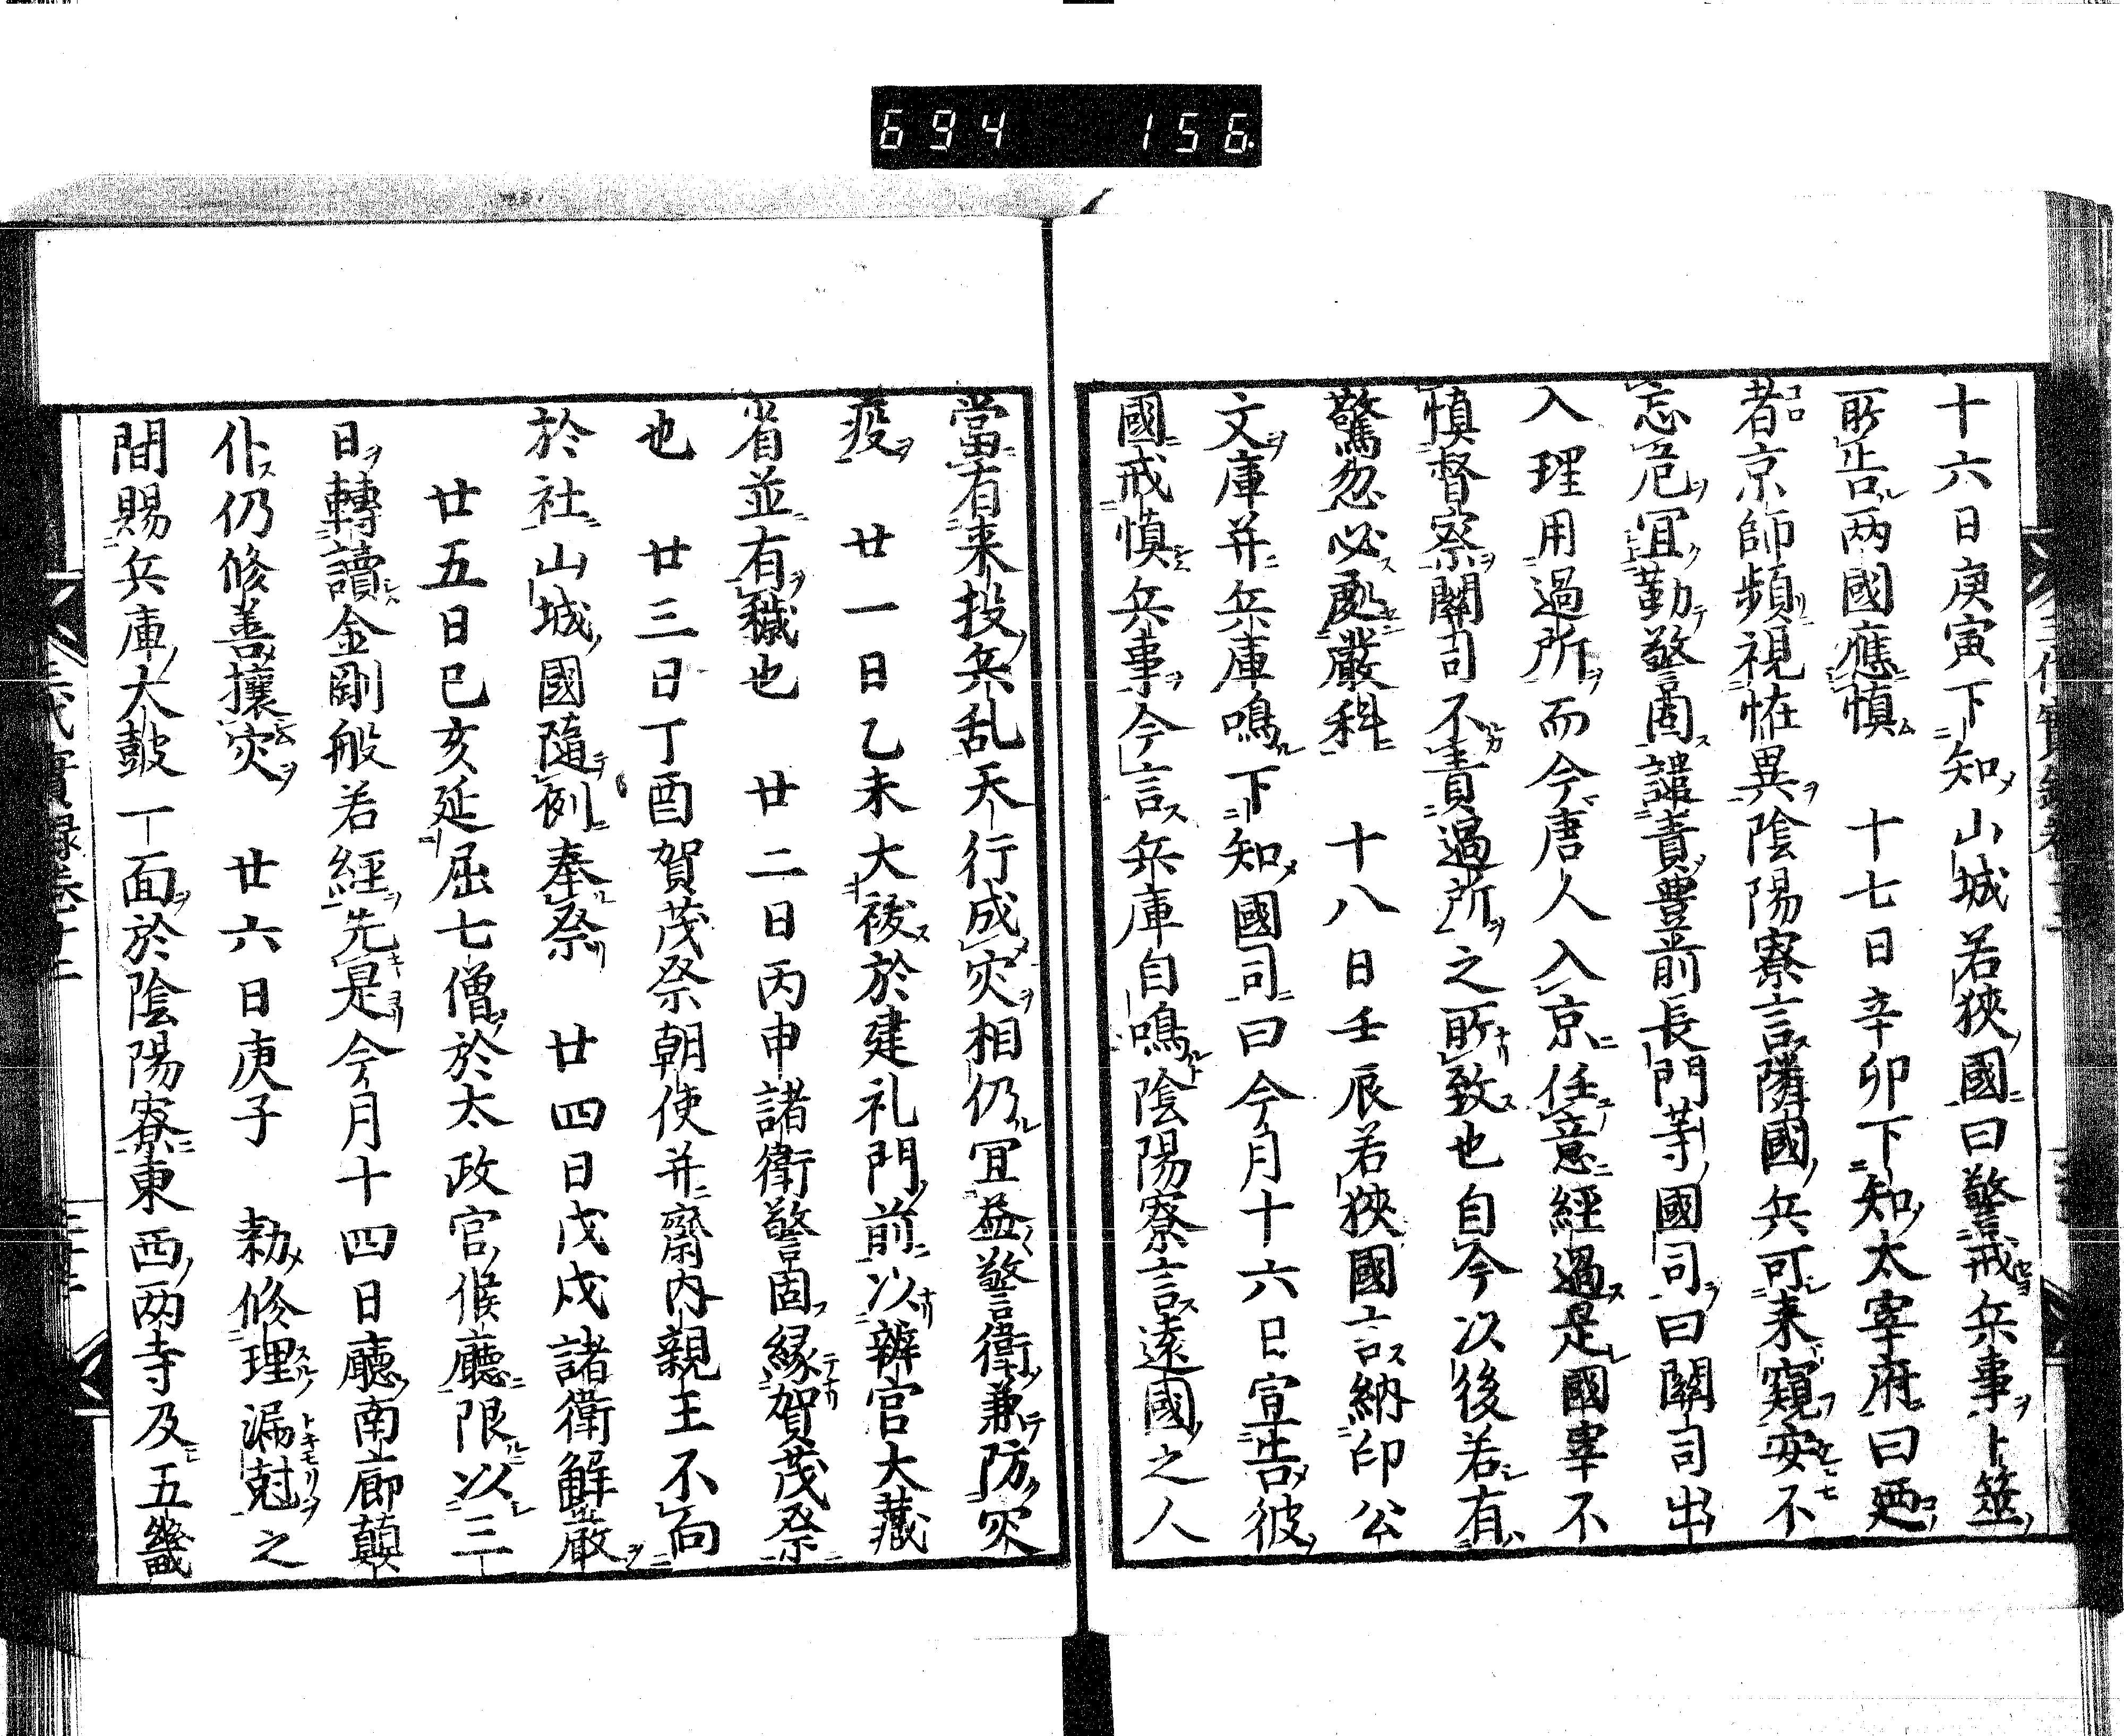 694 156
十六日庚寅下知山城若狹國曰警戒兵事卜筮
所告两國應慎 十七日辛卯下知太宰府曰廼
者京師頻視恠異陰陽寮言隣國兵可来窺安不
忘危冝勤警固譴責豊前長門等國司曰關司出
入理用過所而今唐人入京任意經過是國宰不
慎督察關司不責過所之所致也自今以後若有
驚忽必處嚴科 十八日壬辰若狹國言納印公
文庫并兵庫鳴下知國司曰今月十六日宣告彼
國戒慎兵事今言兵庫自鳴陰陽寮言遠國之人
當有来投兵乱天行成灾相仍冝益警衛兼防灾
疫 廿一日乙未大祓於建礼門前以辨官大藏
省並有穢也 廿二日丙申諸衛警固縁賀茂祭
也 廿三日丁酉賀茂祭朝使并齋内親王不向
於社山城國隨例奉祭 廿四日戊戌諸衛解嚴
廿五日己亥延屈七僧於太政官候廳限以三
日轉讀金剛般若經先是今月十四日廳南廊顛
仆仍修善攘灾 廿六日庚子 勑修理漏尅之
間賜兵庫大鼓一面於陰陽寮東西两寺及五畿